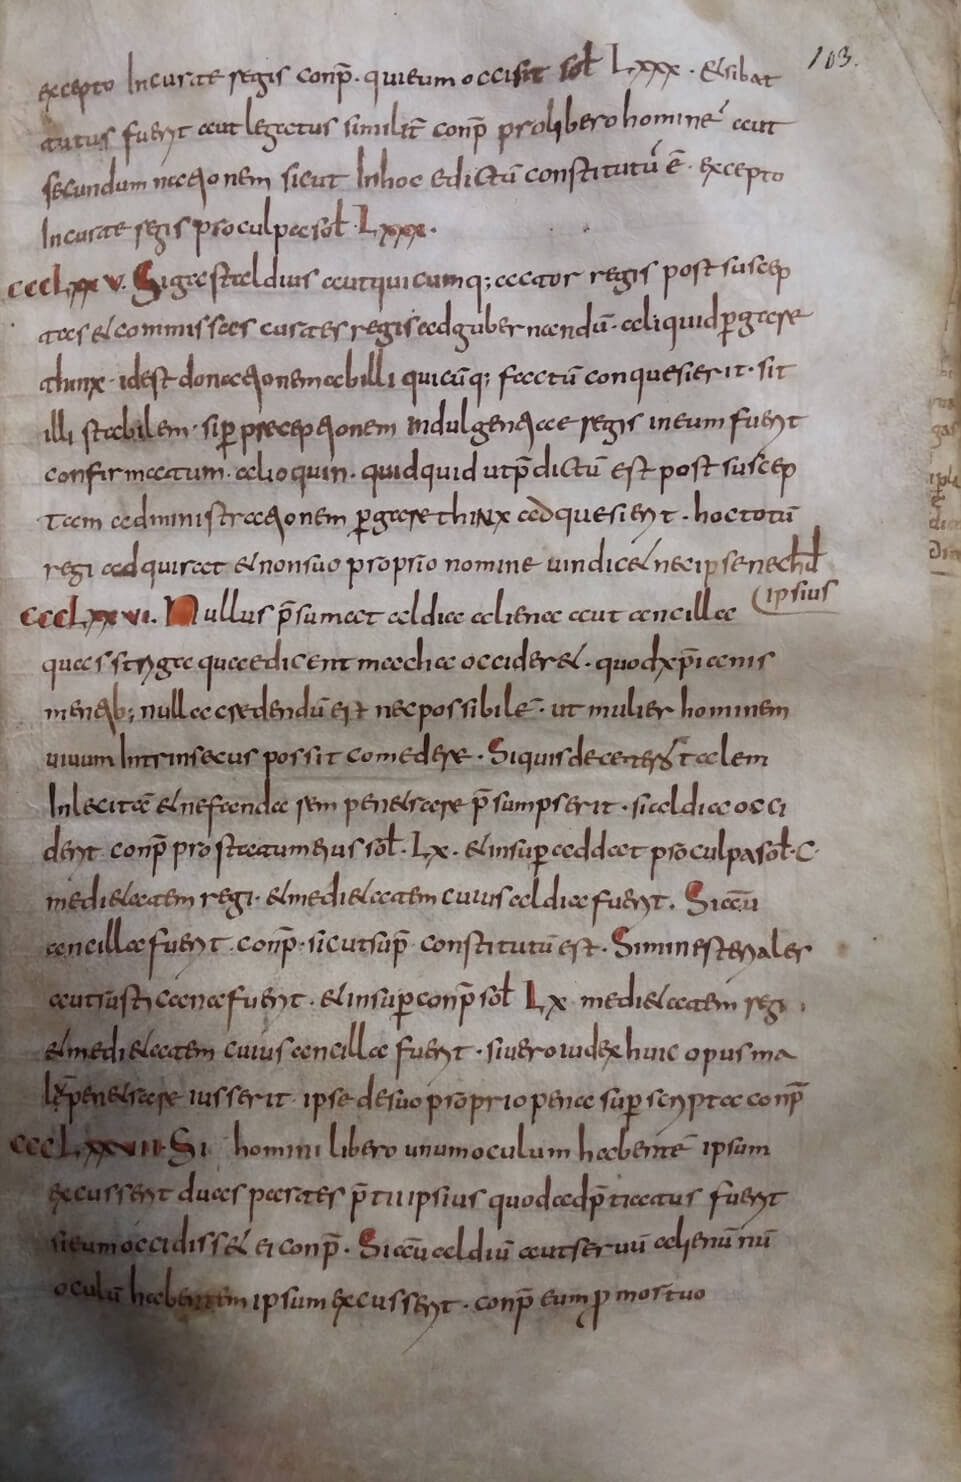 103.
excepto In curate regis conp̄. qui eum occisit sol̄ Lxxx. et si bat
tutus fuerit aut legatus similit̄ conp̄ pro libero homine aut
secundum nationem sicut In hoc edictū constitutū ē. excepto
In curate regis pro culpa sol̄. Lxxx.
cccLxxv. Si gastaldius aut quicumq; actor regis post suscep
tas et commissas curates regis ad gubernandū. aliquid p̄ gare
thinx. id est donationem ab illi quicūq; factū conquesierit. sit
illi stabilem. si p̄ preceptionem Indulgentiae regis in eum fuerit
confirmatum. alioquin. quidquid ut p̄dictū est post suscep
tam administrationem p̄ gare thinx adquesierit. hoc totū
regi adquirat et non suo proprio nomine uindicet nec ipse nec hd̄
ipsius
cccLxxvi. Nullus p̄sumat aldia aliena aut ancilla
quas stryga quae dicent macha occideret. quod xp̄ianis
mentib; nulla credendū est nec possibilē. ut mulier hominem
uiuum Intrinsecus possit comedere. Si quis de cetero talem
Inlecitā et nefanda rem penetrare p̄sumpserit. si aldia occi
derit conp̄ pro statum eius sol̄. Lx. et insup̄ addat pro culpa sol̄. C
medietatem regi. et medietatem cuius aldia fuerit. Si aū
ancilla fuerit. conp̄. sicut sup̄ constitutū est. Si ministerialer
aut rusticana fuerit. et insup̄ conp̄ sol̄ Lx medietatem regi
et medietatem cuius ancilla fuerit. si uero iudex huic opus ma
lū penetrare iusserit ipse de suo proprio pena sup̄ scrypta conp̄
cccLxxvii. Si homini libero unum oculum habentē ipsum
excusserit duas paratas p̄tii ipsius quod adp̄tiatus fuerit
si eum occidisset ei conp̄. Si aū aldiū aut seruū alienū nū
oculū habentem ipsum excusserit. conp̄ eum p̄ mortuo